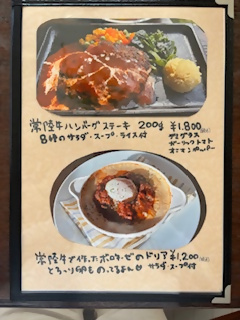 常陸牛ハンバーグステーキ 200g ¥1,800
8種のサラダ・スープ・ライス付
デミグラス
ガーリックトマト
オニオンペッパー
常陸牛で作ったボロネーゼのドリア ¥1,200
とろ〜り卵ものってるよん
サラダ・スープ付